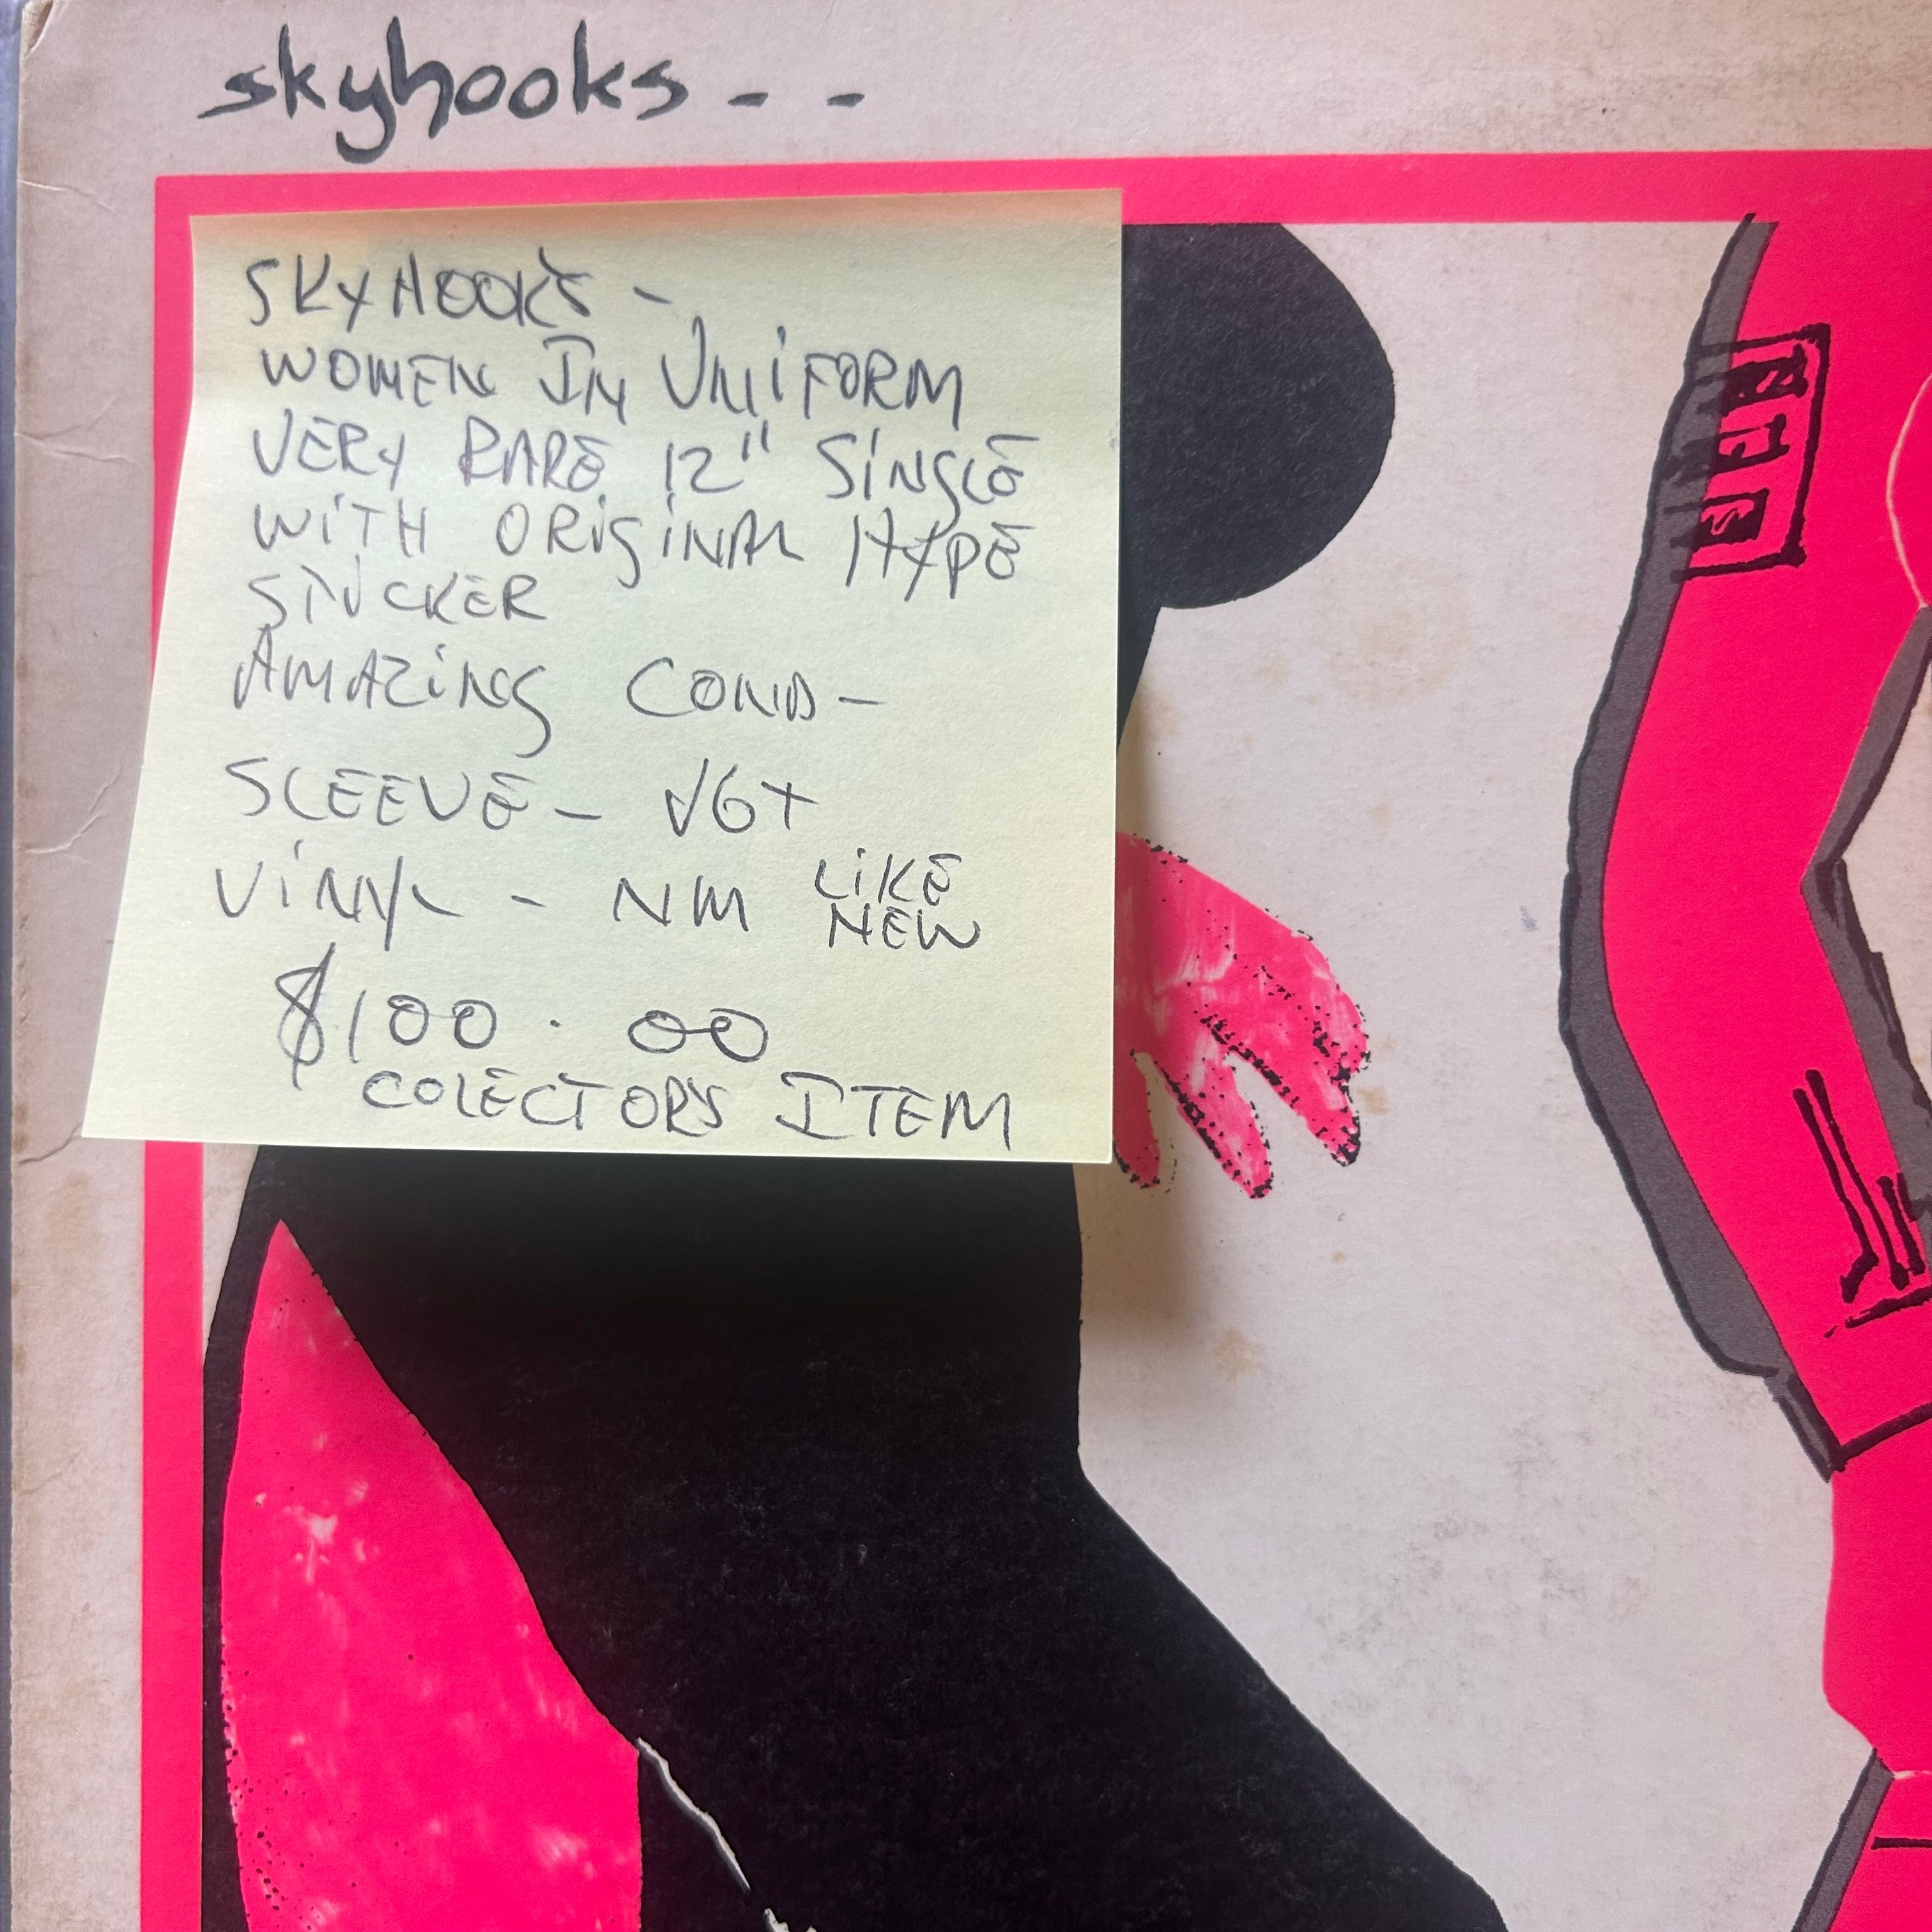 skyhooks - -
SKYHOOKS -
WOMEN IN UNIFORM
VERY RARE 12" SINGLE
WITH ORIGINAL HYPE
STICKER
AMAZING COND -
SLEEVE - VG+
VINYL - NM LIKE
NEW
$100.00
COLECTORS ITEM